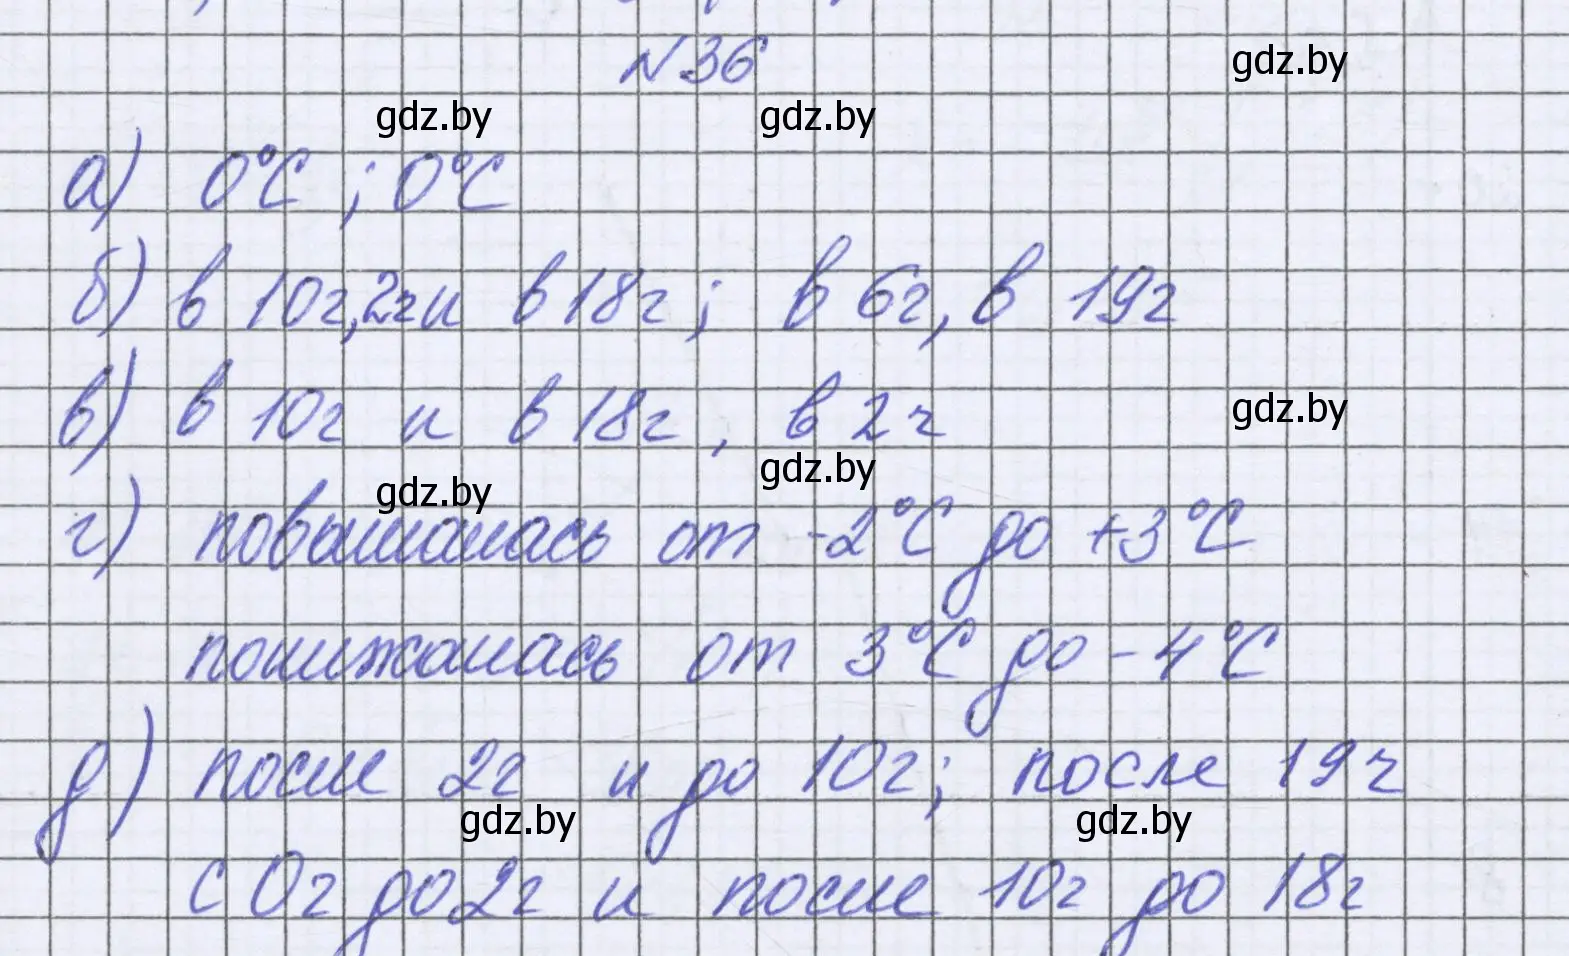 №36
gdz.by
gdz.by
gdz.by
а) 0°С ; 0°С
б) в 10ч, 2ч и в 18ч; в 6ч, в 19ч
в) в 10ч и в 18ч, в 2ч
gdz.by
gdz.by
gdz.by
г) повышалась от -2°С до +3°С
понижалась от 3°С до -4°С
д) после 2ч и до 10ч; после 19ч
gdz.by
gdz.by
с 0ч до 2ч и после 10ч до 18ч